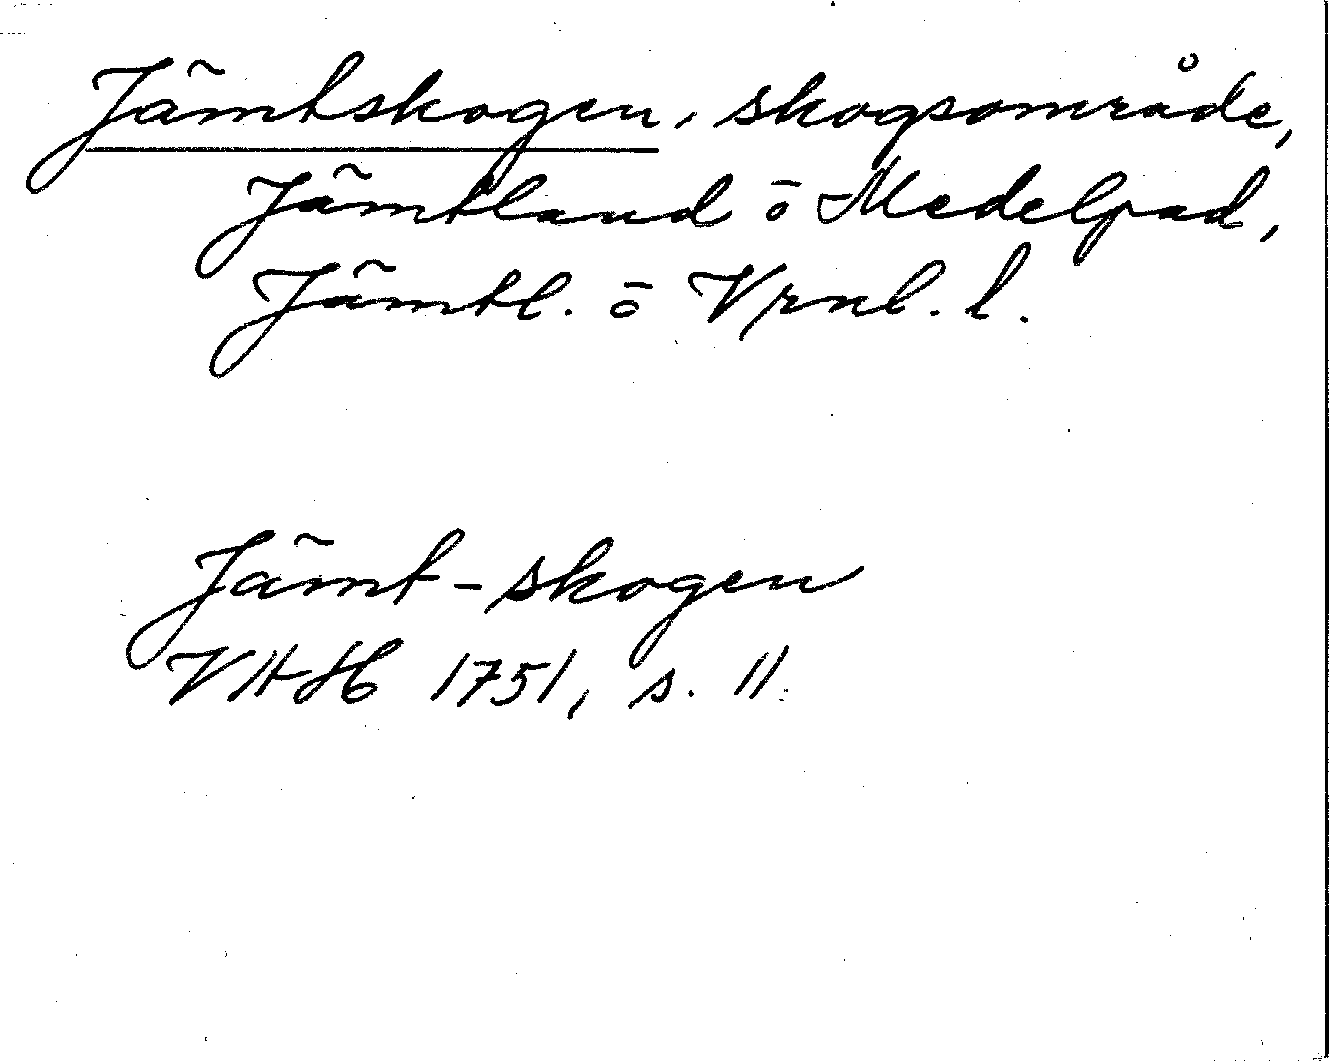 Jämtskogen, skogsområde,
Jämtland ö Medelpad,
Jämtl. ö Vrnl. l.
Jämt-skogen
VHH 1751, s. 11